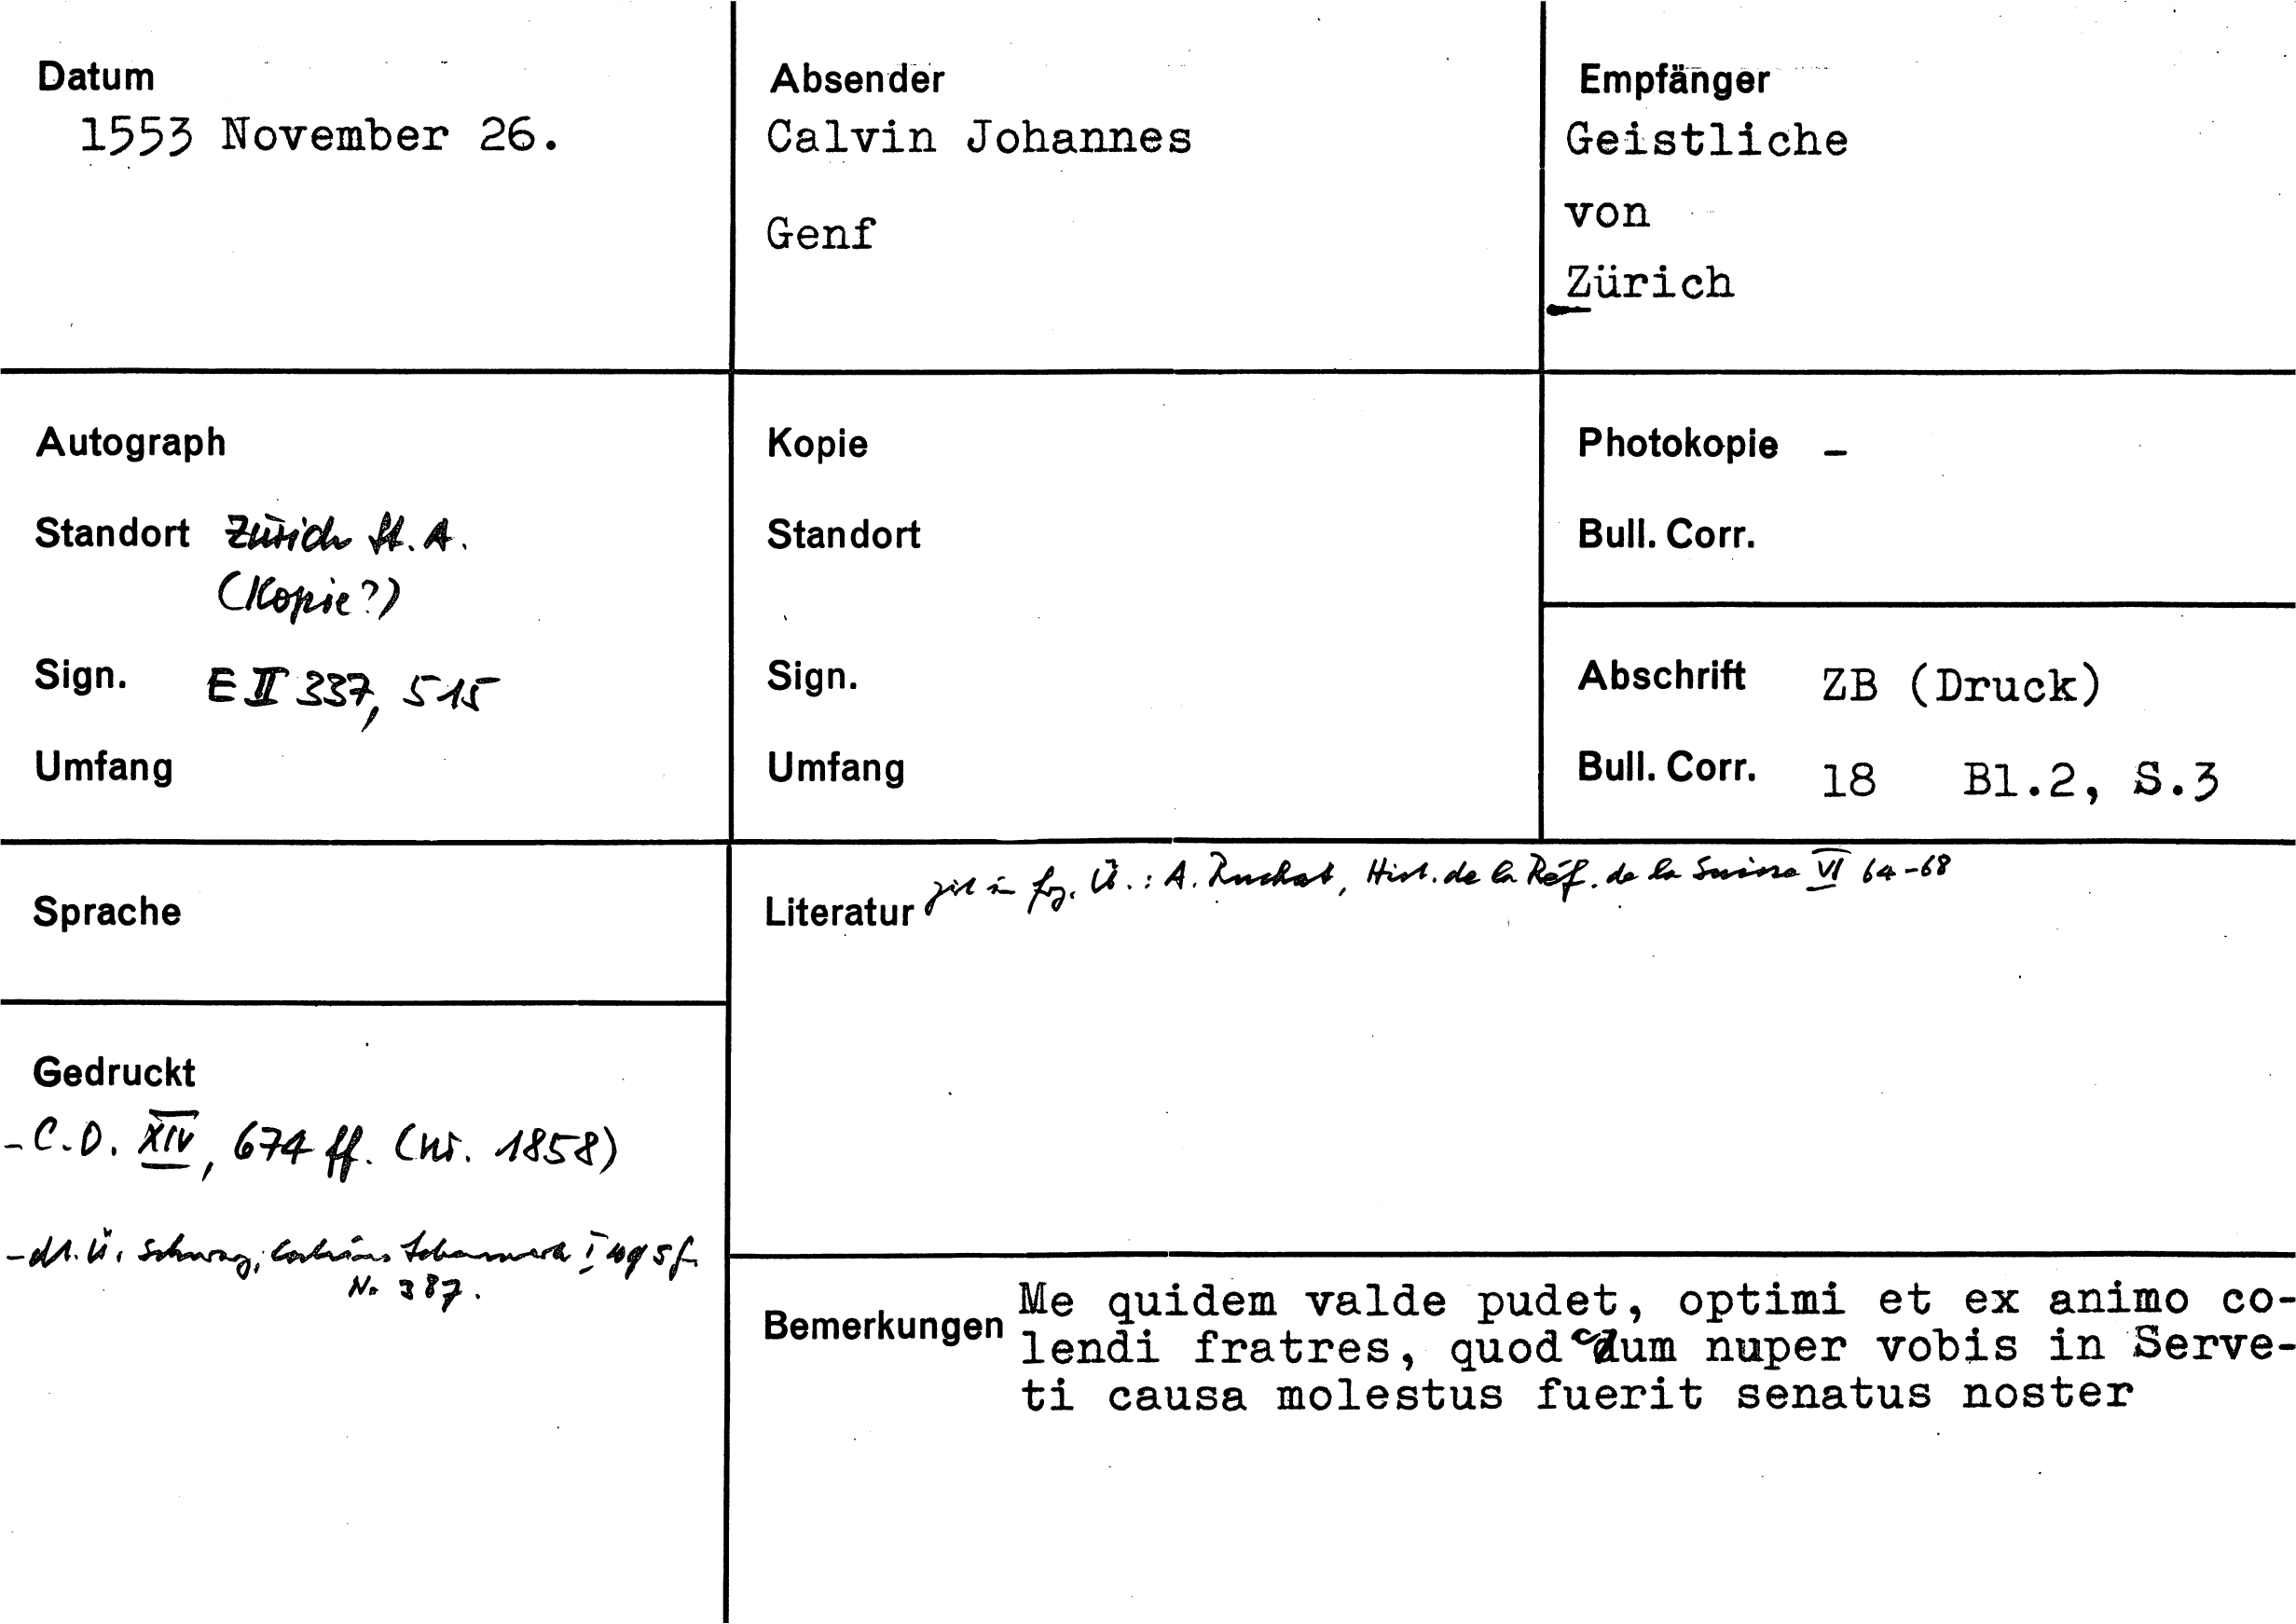 Datum
1553 November 26.
Absender
Calvin Johannes
Genf
Empfänger
Geistliche
von
Zürich
Autograph
Standort Zürich St. A.
(Kopie?)
Sign. E II 337, 515
Umfang
Kopie
Standort
Sign.
Umfang
Photokopie –
Bull. Corr.
Abschrift ZB (Druck)
Bull. Corr. 18 Bl.2, S.3
Sprache
Literatur zit in frz. Ü.: A. Ruchat, Hist. de la Réf. de la Suisse VI 64-68
Gedruckt
- C.O. XIV, 674 ff. (Nr. 1858)
- dt. Ü. Schwarz, Calvins Lebenswerk I 495 f.
No 387.
Bemerkungen Me quidem valde pudet, optimi et ex animo co-
lendi fratres, quod cum nuper vobis in Serve-
ti causa molestus fuerit senatus noster